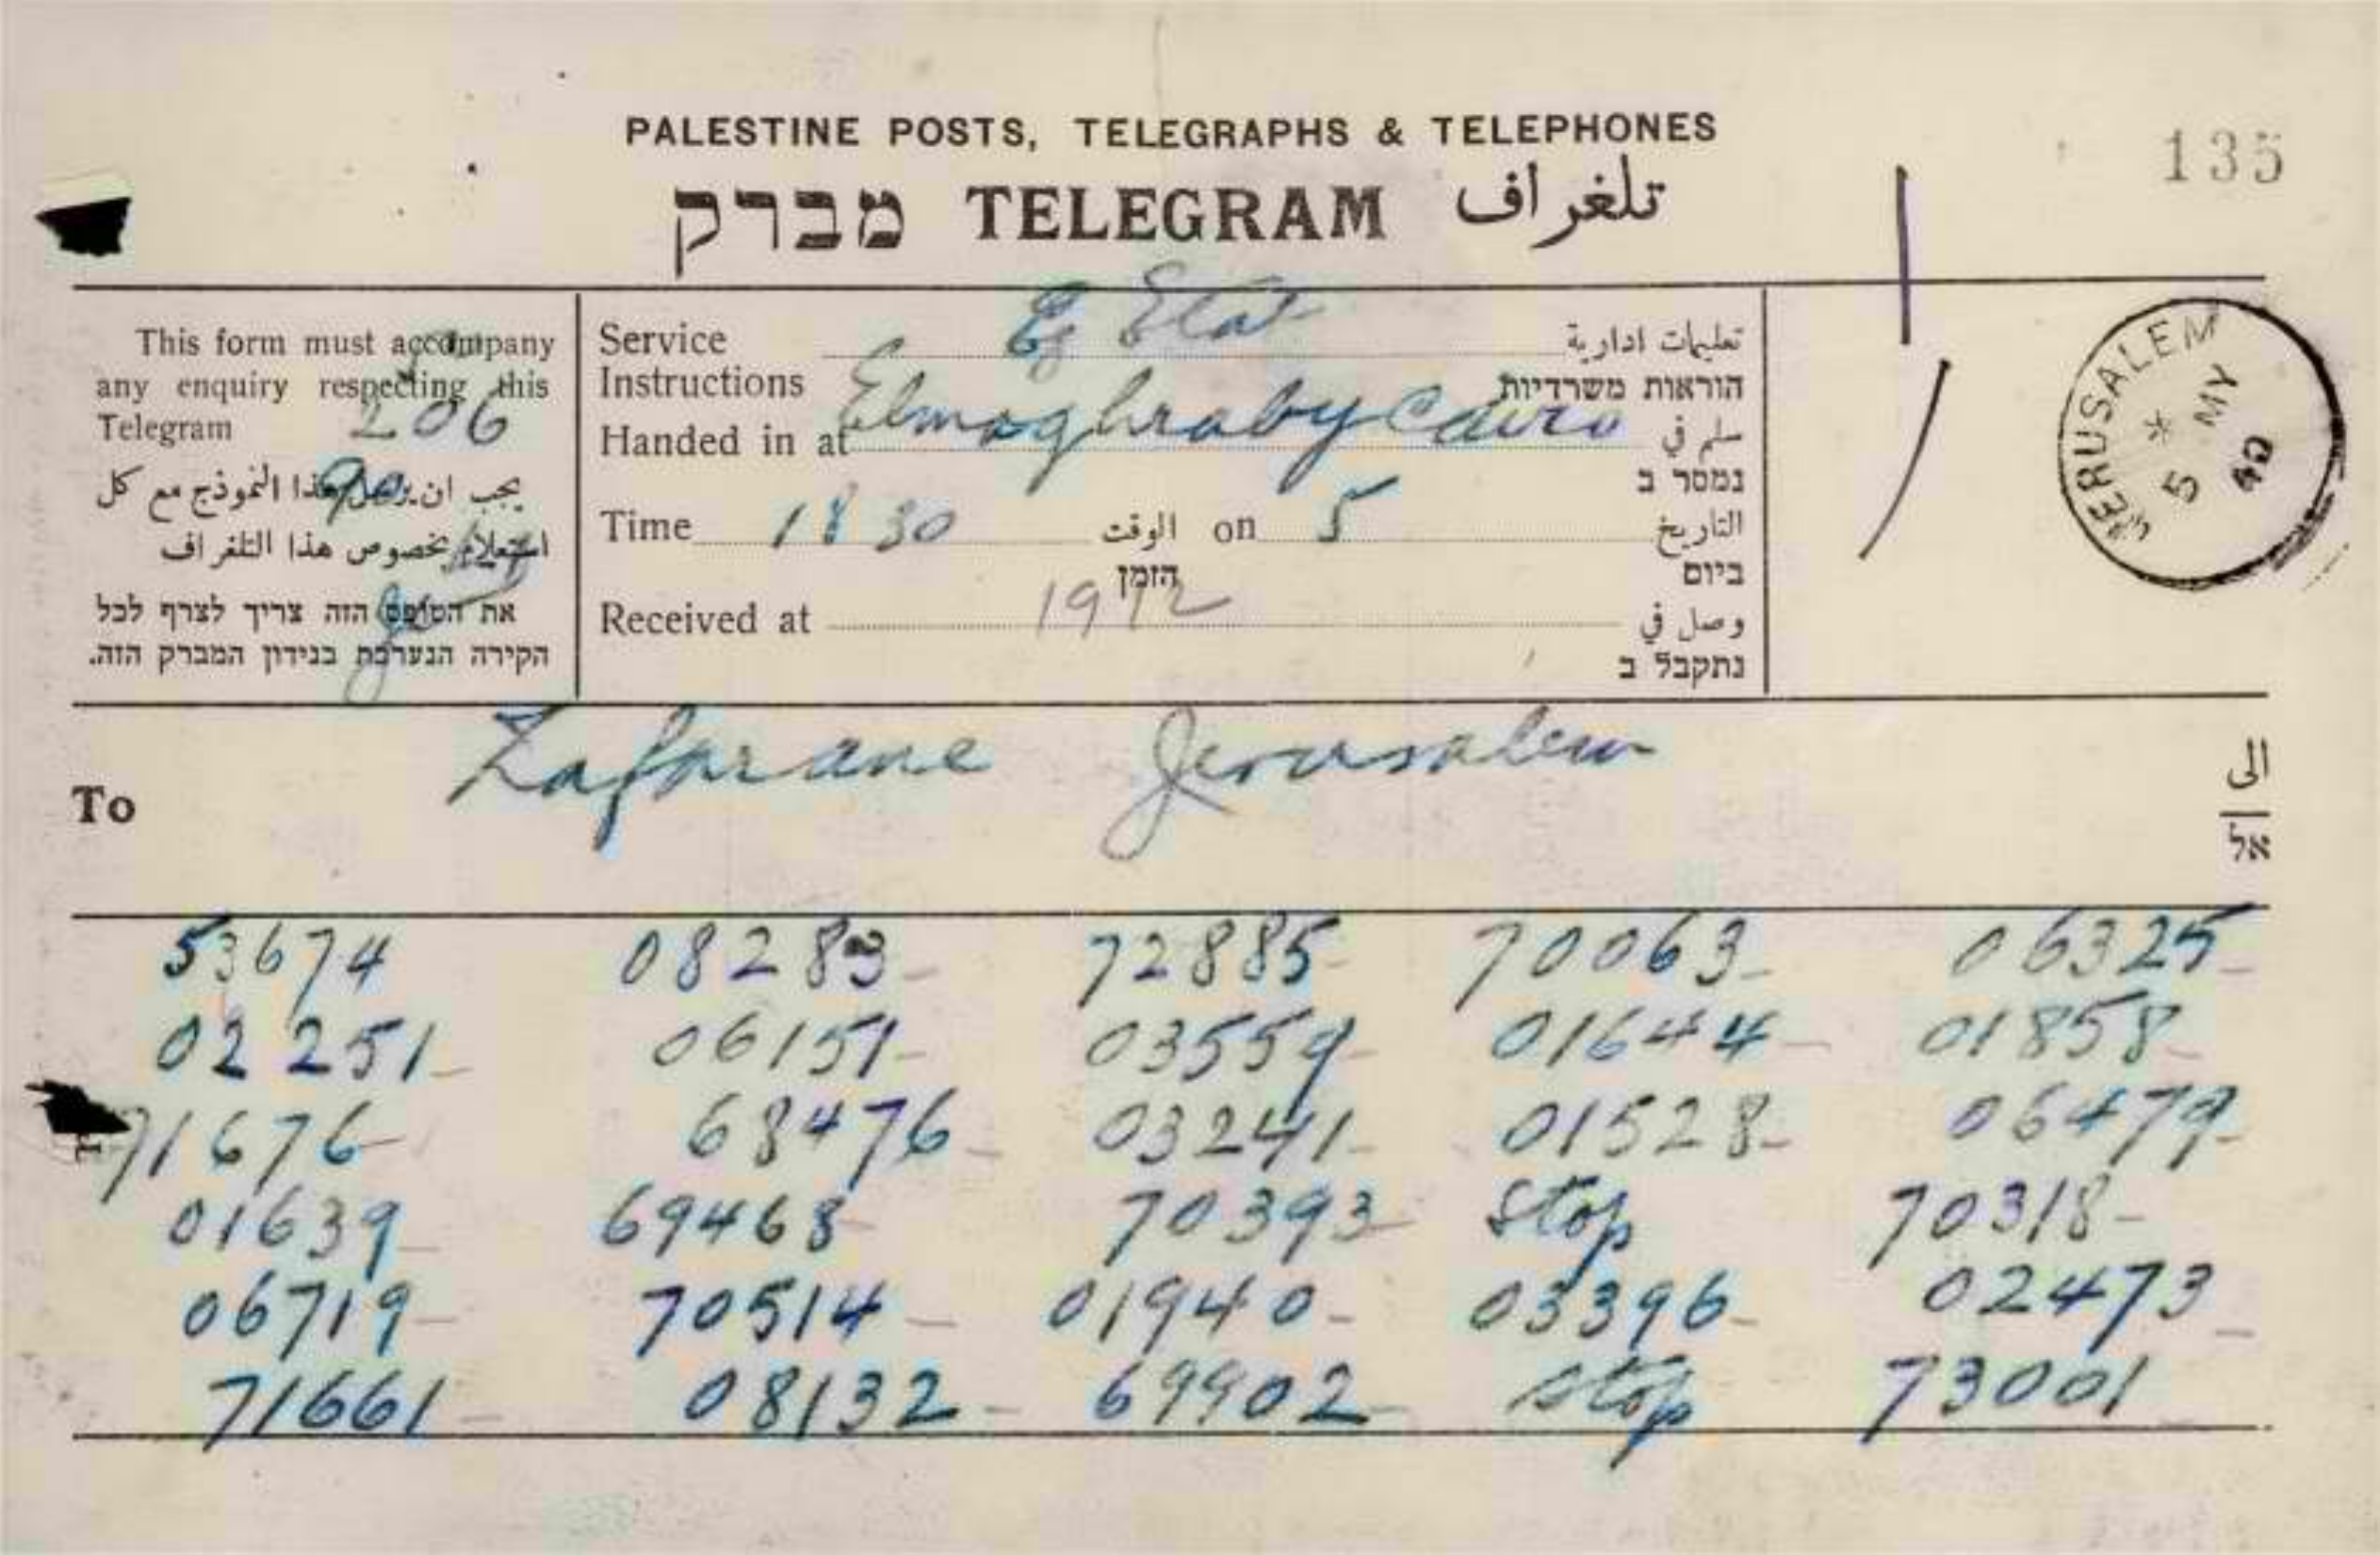 135
PALESTINE POSTS, TELEGRAPHS & TELEPHONES
מברק TELEGRAM تلغراف
This form must accompany
any enquiry respecting this
Telegram 206
يجب ان يرسل هذا النموذج مع كل
استعلام بخصوص هذا التلغراف
את הטופס הזה צריך לצרף לכל
חקירה הנערכת בנידון המברק הזה.
Etat
Service تعليمات ادارية
Instructions הוראות משרדיות
Handed in at Elmaghraby Cairo سلم في
נמסר ב
Time 18 30 الوقت on 5 التاريخ
הזמן ביום
Received at 1912 وصل في
נתקבל ב
JERUSALEM
5 MY
40
To Zafarane Jerusalem الى
אל
53674 08283 72885 70063 06325
02251 06151 03559 01644 01858
71676 68476 03241 01528 06479
01639 69468 70393 stop 70318
06719 70514 01940 03396 02473
71661 08132 69902 stop 73001